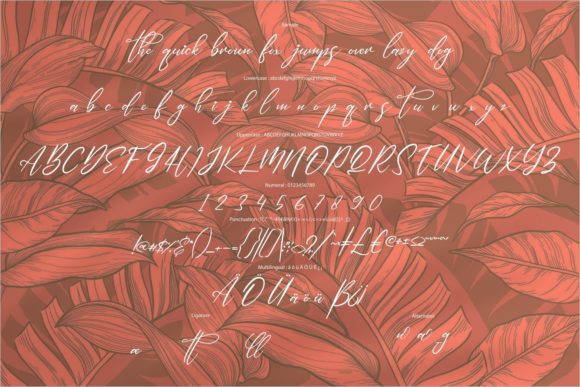 Sample
the quick brown fox jumps over lazy dog
Lowercase : abcdefghijklmnopqrstuvwxyz
a b c d e f g h i j k l m n o p q r s t u v w x y z
Uppercase : ABCDEFGHIJKLMNOPQRSTUVWXYZ
ABCDEFGHIJKLMNOPQRSTUVWXYZ
Numeral : 0123456789
1 2 3 4 5 6 7 8 9 0
Punctuation :
Multilingual : ä ö ü Ä Ö Ü
Ä Ö Ü ä ö ü
Ligature Alternates
æ tt ll w as g